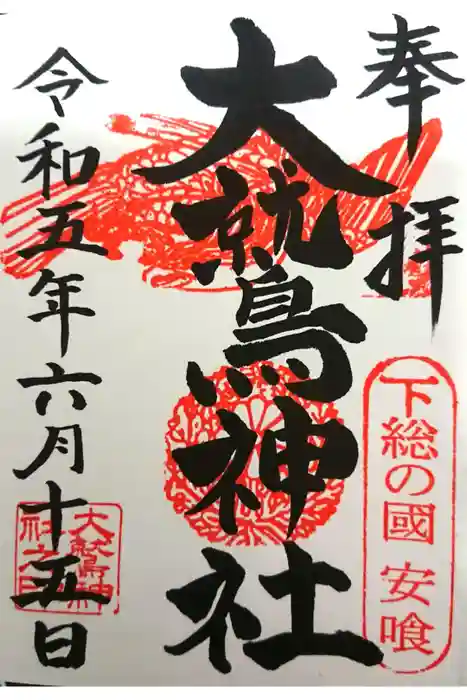 奉拝
下総の國 安喰
大鷲神社
令和五年六月十五日
大鷲神社之印